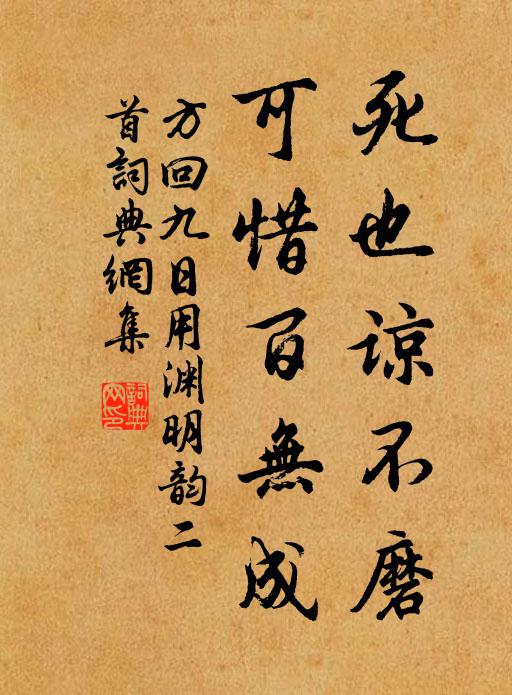 死也谅不磨
可惜百無成
方回九日用渊明韵二
首詞典網集
詞典網印